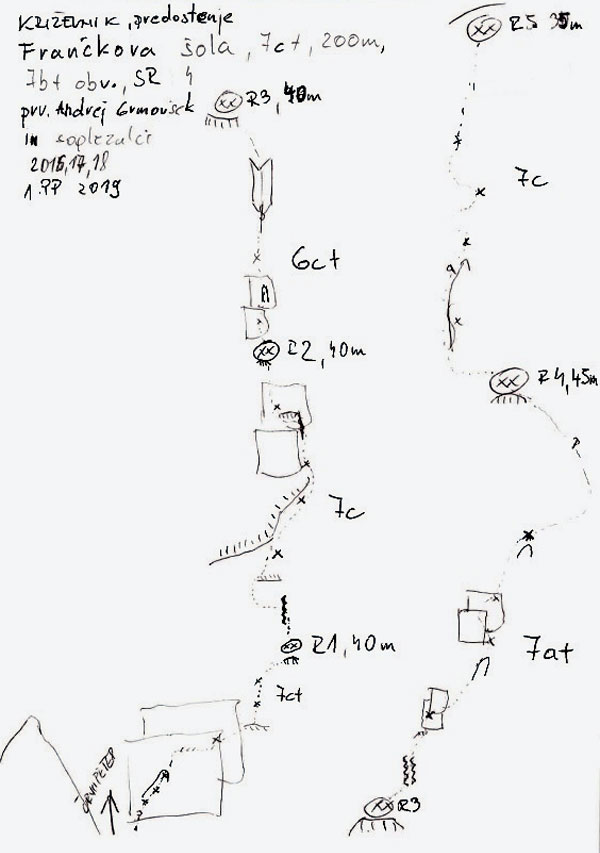 KRIŽEVNIK, predostenje
Frančkova šola, 7c+, 200m,
7b+ obv., SR 4
prv. Andrej Grmovšek
in soplezalci
2016,17,18
1.PP 2019
R3, 40m
6c+
R2, 40m
7c
R1, 40m
7c+
R5 35m
7c
R4, 45m
7a+
R3